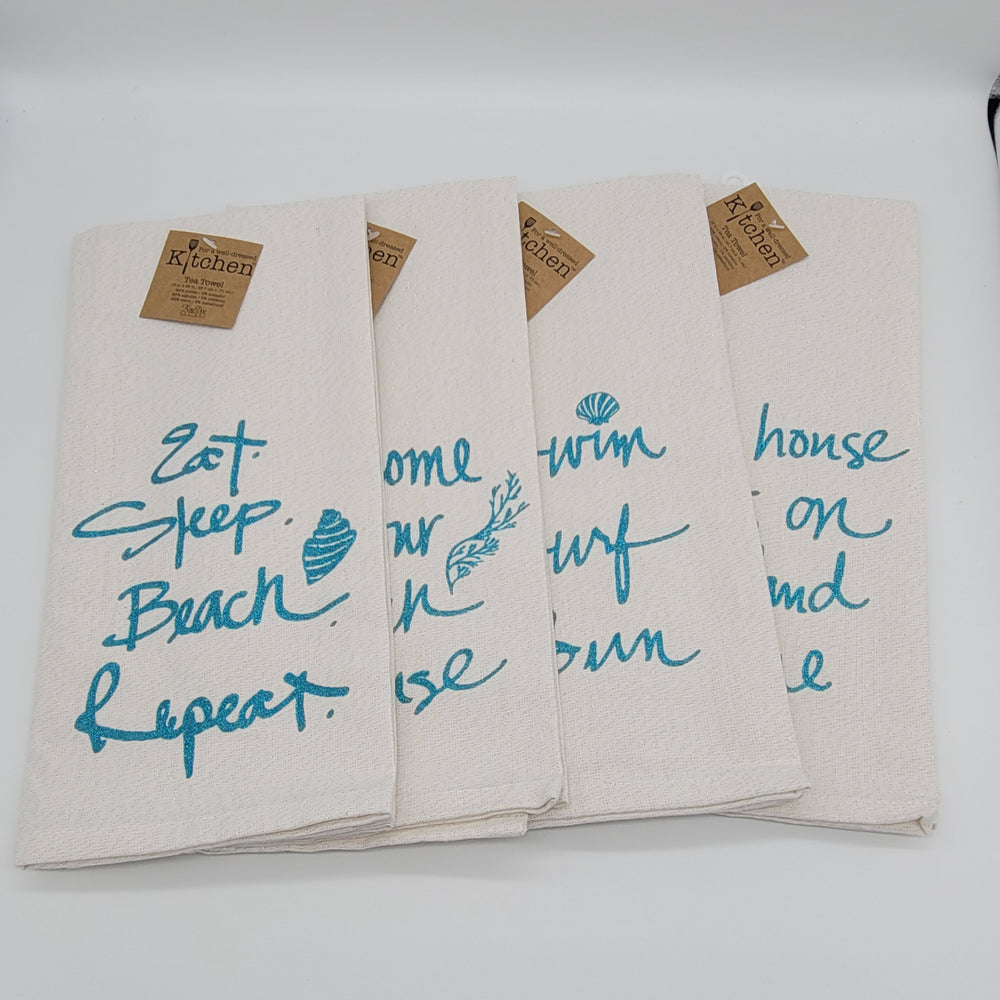 For a well-dressed
Kitchen
Tea Towel
Eat.
Sleep.
Beach.
Repeat.
itchen
ome
ur
h
use
tchen
owel
wim
urf
Sun
For a well-dressed
Kitchen
Tea Towel
house
on
and
e